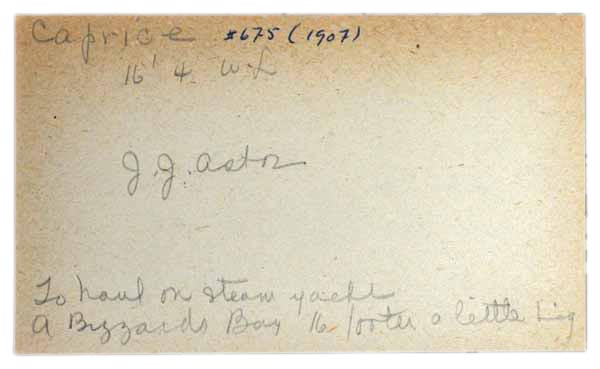 Caprice #675 (1907)
16' 4 W-L
J. J. Astor
To haul on steam yacht
A Buzzards Bay 16 footer a little